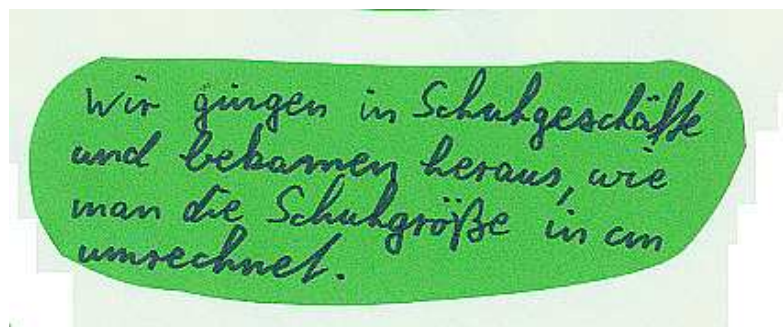 Wir gingen in Schuhgeschäfte
und bekamen heraus, wie
man die Schuhgröße in cm
umrechnet.